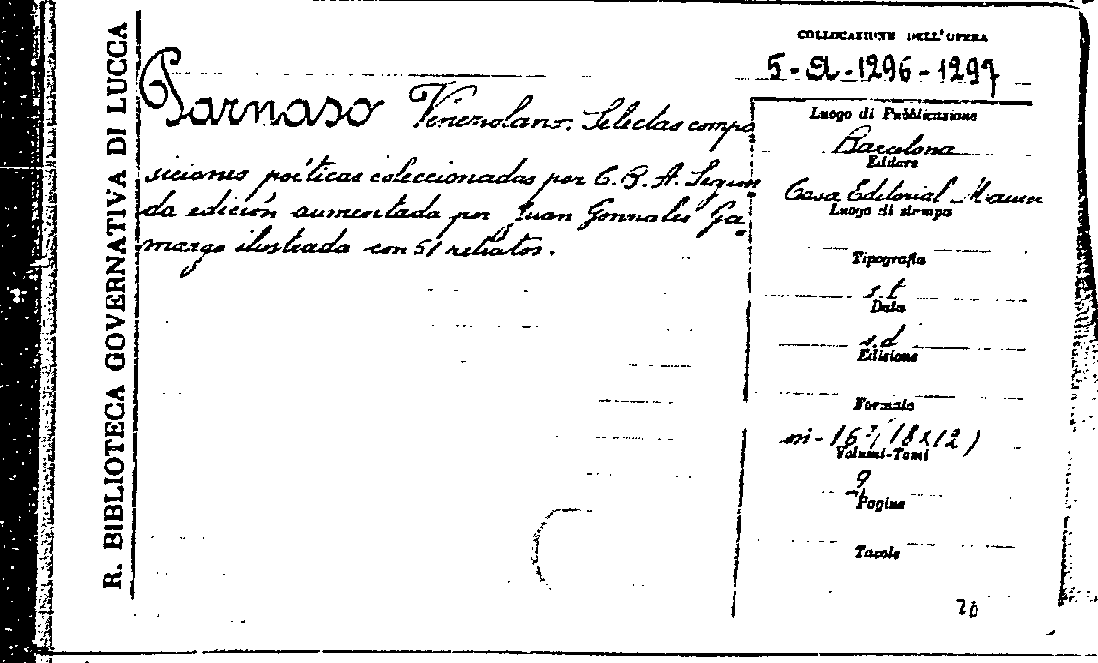 R. BIBLIOTECA GOVERNATIVA DI LUCCA
COLLOCAZIONE DELL'OPERA
5-A-1296-1297
Parnaso Venezolano. Selectas compo
siciones poéticas coleccionadas por C. B. A. Segun
da edición aumentada por Juan Gonzales Ga=
margo ilustrada con 51 retratos.
Luogo di Pubblicazione
Barcelona
Editore
Casa Editorial Maucci
Luogo di stampa
Tipografia
s.t
Data
s.d
Edizione
Formato
in-16º (18x12)
Volumi-Tomi
Pagine
Tavole